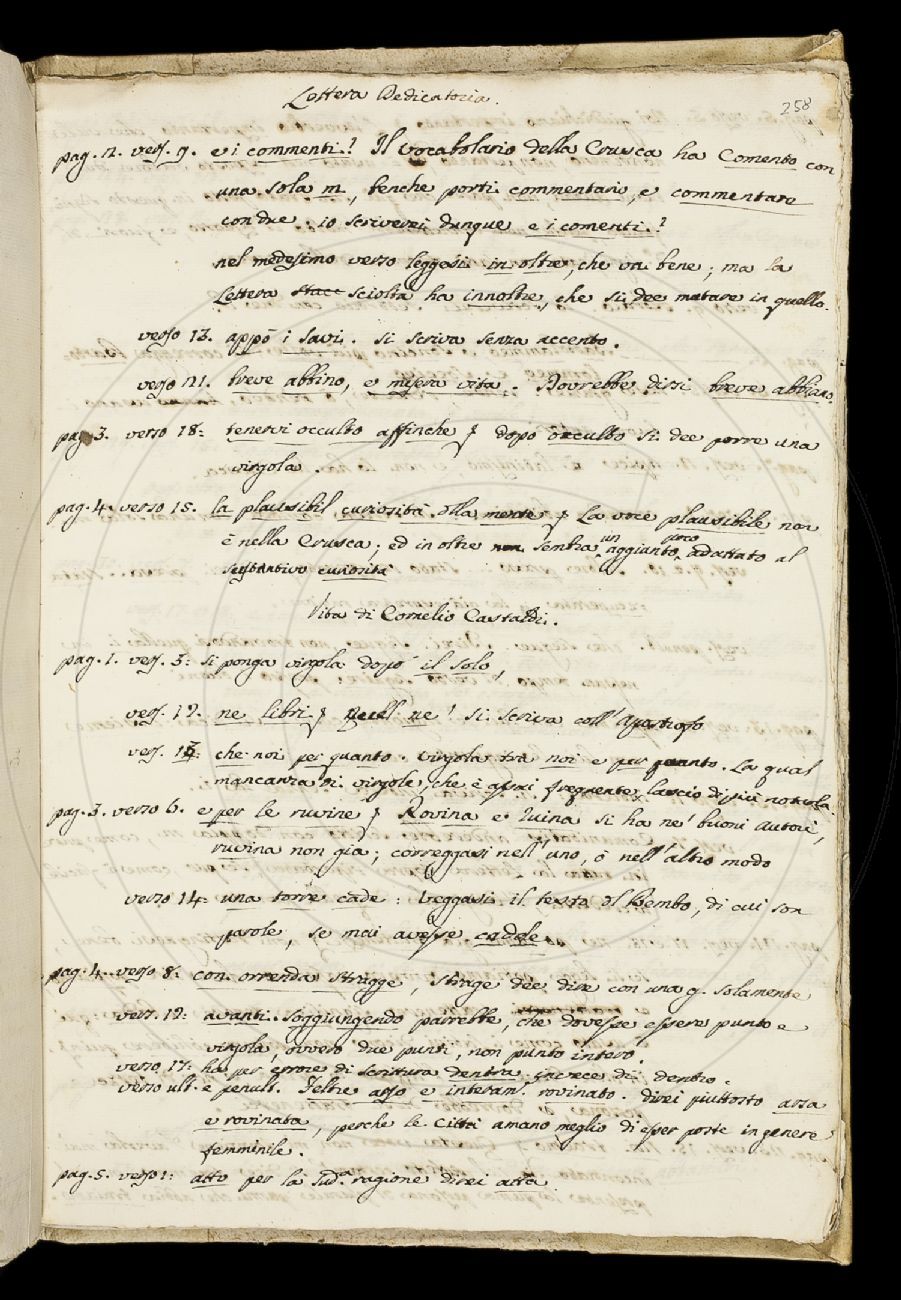 258
Lettera Dedicatoria.
pag. 2. vers. 9. e i commenti.! Il Vocabolario della Crusca ha Comento con
una sola m, benche porti commentario, e commentare
con due. io scriverei dunque e i comenti.!
nel medesimo verso leggesi in oltre, che va bene; ma la
Lettera sciolta ha innoltre, che si dee mutare in quello.
verso 13. appò i savi. si scriva senza accento.
verso 21. breve abbino, e misera vita. Dovrebbe dirsi breve abbiano.
pag. 3. verso 18: tenervi occulto affinche dopo occulto si dee porre una
virgola.
pag. 4. verso 15. la plausibil curiosità alla mente La voce plausibile non
è nella Crusca; ed in oltre non sembra un aggiunto poco adattato al
sustantivo curiosità
Vita di Cornelio Castaldi.
pag. 1. vers. 3: si ponga virgola dopo il solo,
vers. 12. ne libri ne' si scriva coll'Apostrofo
vers. 13: che noi per quanto. virgola trà noi e per quanto. La qual
mancanza di virgole, che è assai frequente, lascio di più notarla.
pag. 3. verso 6. e per le ruvine Rovina e Ruina si ha ne' buoni Autori,
ruvina non già; correggasi nell'uno, ò nell'altro modo
verso 14: una torre cade: Veggasi il testo del Bembo, di cui son
parole, se mai avesse cadde.
pag. 4. verso 8. con orrenda strugge, struge dee dire con una g. solamente
vers. 12: avanti. soggiungendo parrebbe, che dovesse essere punto e
virgola, ovvero due punti, non punto intero.
verso 17: ha per errore di scrittura dentra invece di dentro.
verso ult. e penult. Feltre arso e interam. rovinato. direi piuttosto arsa
e rovinata, perche le Città amano meglio di esser poste in genere
femminile.
pag. 5. verso 1: atto per la sud.a ragione direi atta